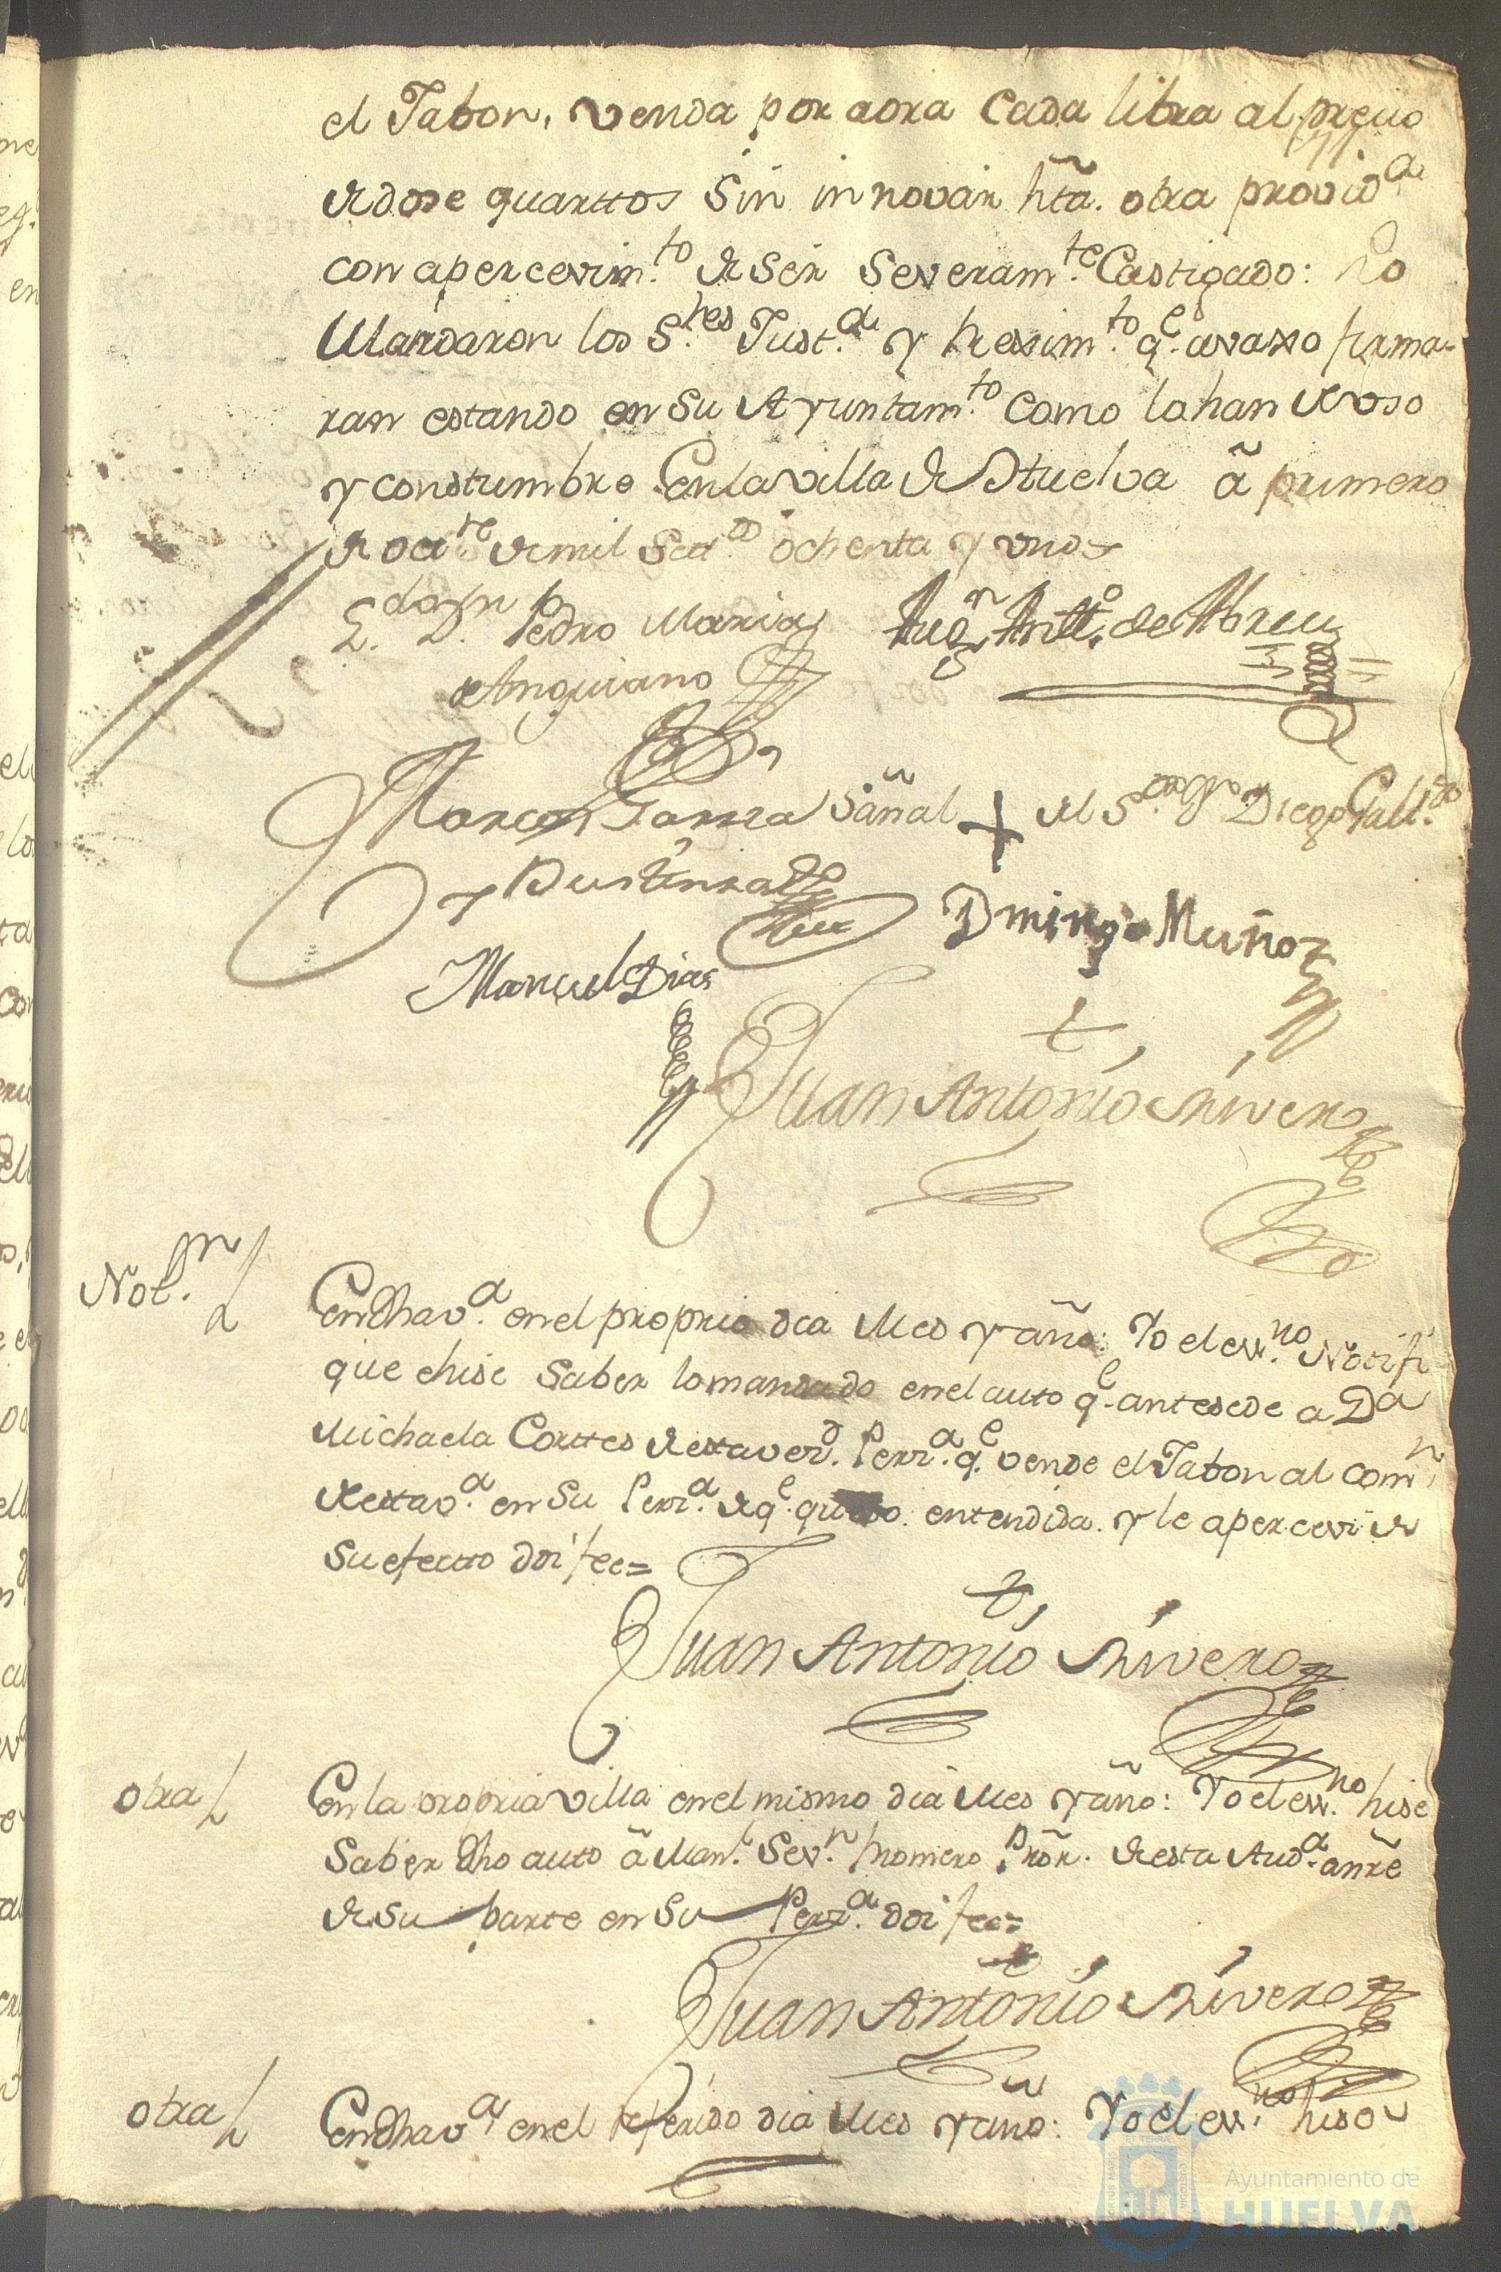 el Jabon, venda por aora Cada libra al precio
de dose quarttos sin innovar hta. otra provid.a
con apercevim.to de ser severam.te Castigado: Lo
Mandaron los S.res Just.a y Rexim.to q.e avaxo firma-
ran estando en su Ayuntam.to como lo han de uso
y constumbre En la villa de Huelva â primero
de oct.re de mil Sett.os ochenta y uno
L. D.n Pedro Maria
Anguiano
Aug.n Antt.o de Abreu
Marcos Garcia
y Bustinza
Señal + del S.or Diego Gall.do
Domingo Muñoz
Manuel Dias
Juan Antonio Rivero
Not.n
En dha v.a en el proprio dia Mes y año: Yo el ess.no Notifi
que e hise saber lo mandado en el auto q.e antesede a D.a
Michaela Corttes de esta ver.d Perz.a q.e vende el Jabon al com.n
de esta v.a en su Perz.a de q.e quedo entendida y le apercevi de
su efectto doi fee=
Juan Antonio Rivero
otra
En la propria villa en el mismo dia Mes y año: Yo el ess.no hise
Saber dho auto â Man.l Sev.n Romero Pror. de esta Aud.a anre
de su parte en su Perz.a doi fee=
Juan Antonio Rivero
otra
En dha v.a en el referido dia Mes y año: Yo el ess.no hise
Ayuntamiento de
HUELVA